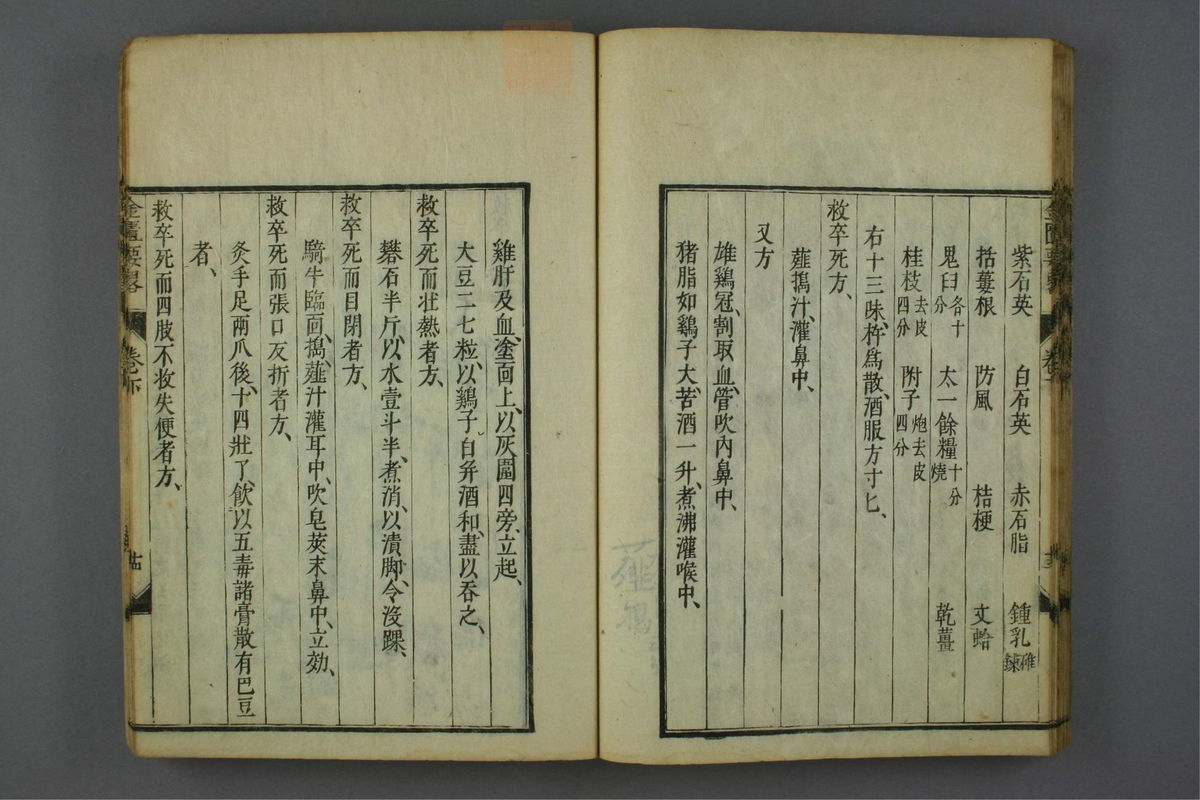 紫石英　白石英　赤石脂　鍾乳碓鍊
括蔞根　防風　桔梗　文蛤
鬼臼各十分　太一餘糧十分燒　乾薑
桂枝去皮四分　附子炮去皮四分
右十三味、杵爲散、酒服方寸匕、
救卒死方、
薤搗汁、灌鼻中、
又方
雄鷄冠、割取血、管吹內鼻中、
猪脂如鷄子大苦酒一升、煮沸灌喉中、
雞肝及血、塗面上、以灰圍四旁、立起、
大豆二七粒、以鷄子白幷酒和、盡以吞之、
救卒死而壮熱者方、
礬石半斤、以水壹斗半、煮消、以漬脚、令沒踝、
救卒死而目閉者方、
騎牛臨面、搗、薤汁灌耳中、吹皂莢末鼻中、立効、
救卒死而張口反折者方、
灸手足兩爪後、十四壯了、飮以五毒諸膏散有巴豆
者、
救卒死而四肢不收失便者方、
金匱要畧　卷下　十四